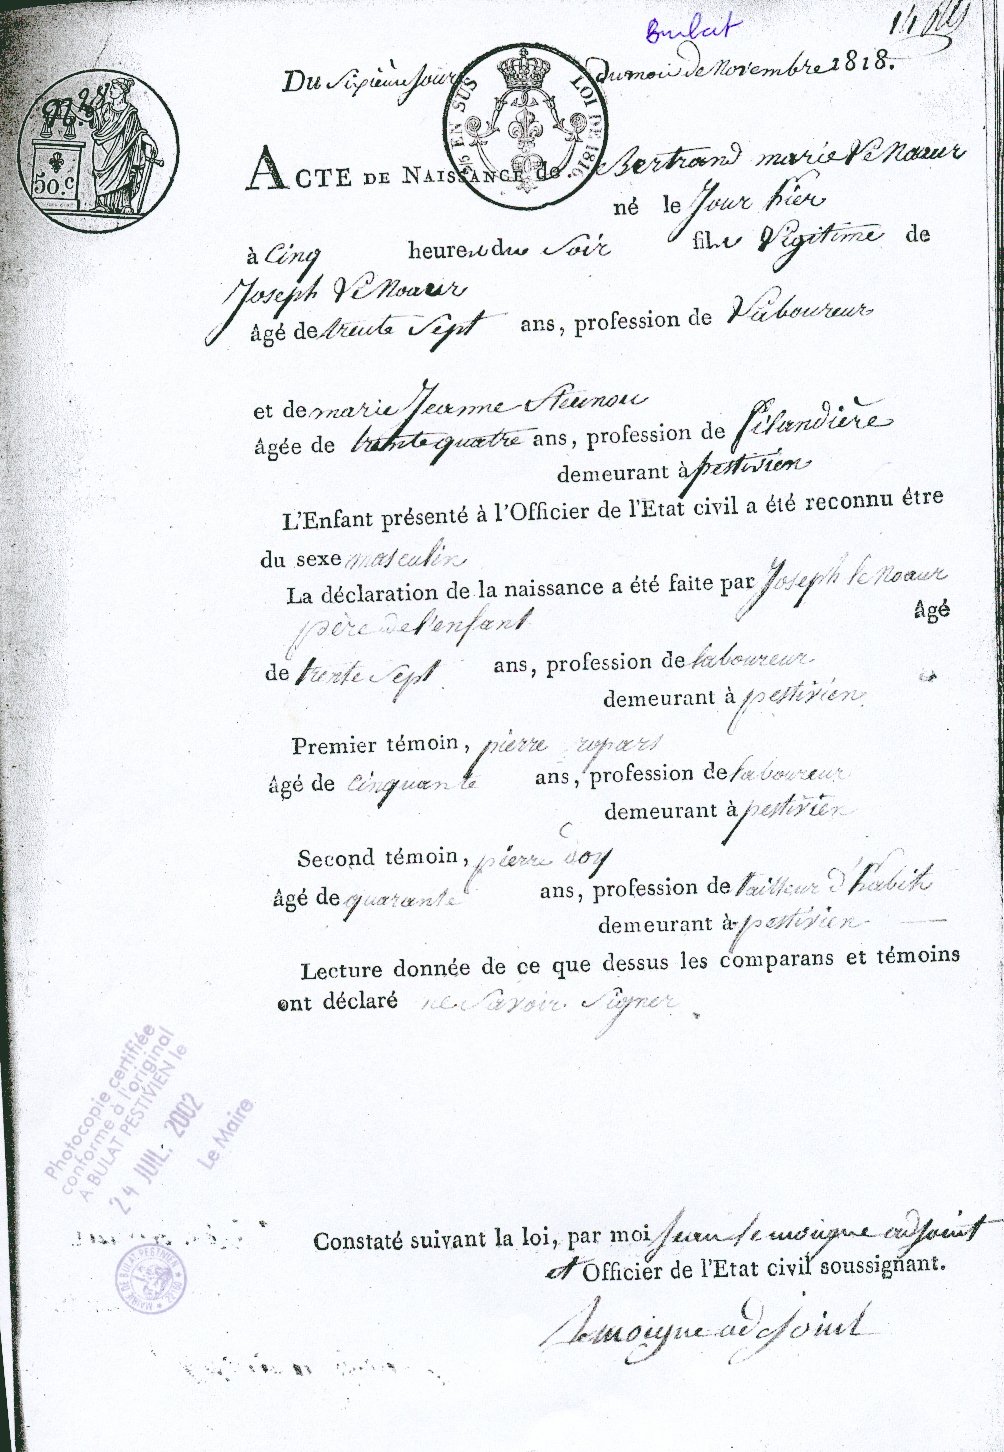 Bulat
14
N.° 28
50.c
EN SUS LOI DE 1816
Du Sixième Jour du moi de Novembre 1818.
ACTE DE NAISSANCE de Bertrand marie Le Noaur
né le Jour hier
à Cinq heures du Soir fils Légitime de
Joseph Le Noaur
âgé de trente Sept ans, profession de Laboureur
et de marie Jeanne
âgée de trente quatre ans, profession de filandière
demeurant à pestivien
L'Enfant présenté à l'Officier de l'Etat civil a été reconnu être
du sexe masculin
La déclaration de la naissance a été faite par Joseph le Noaur
père de l'enfant âgé
de trente Sept ans, profession de laboureur
demeurant à pestivien
Premier témoin, pierre ropars
âgé de cinquante ans, profession de laboureur
demeurant à pestivien
Second témoin, pierre
âgé de quarante ans, profession de tailleur d'habit
demeurant à pestivien
Lecture donnée de ce que dessus les comparans et témoins
ont déclaré ne Savoir Signer
Photocopie certifiée
conforme à l'original
A BULAT PESTIVIEN le
24 JUIL. 2002
Le Maire
Constaté suivant la loi, par moi Jean le moigne adjoint
et Officier de l'Etat civil soussignant.
MAIRIE DE BULAT-PESTIVIEN
Le moigne adjoint